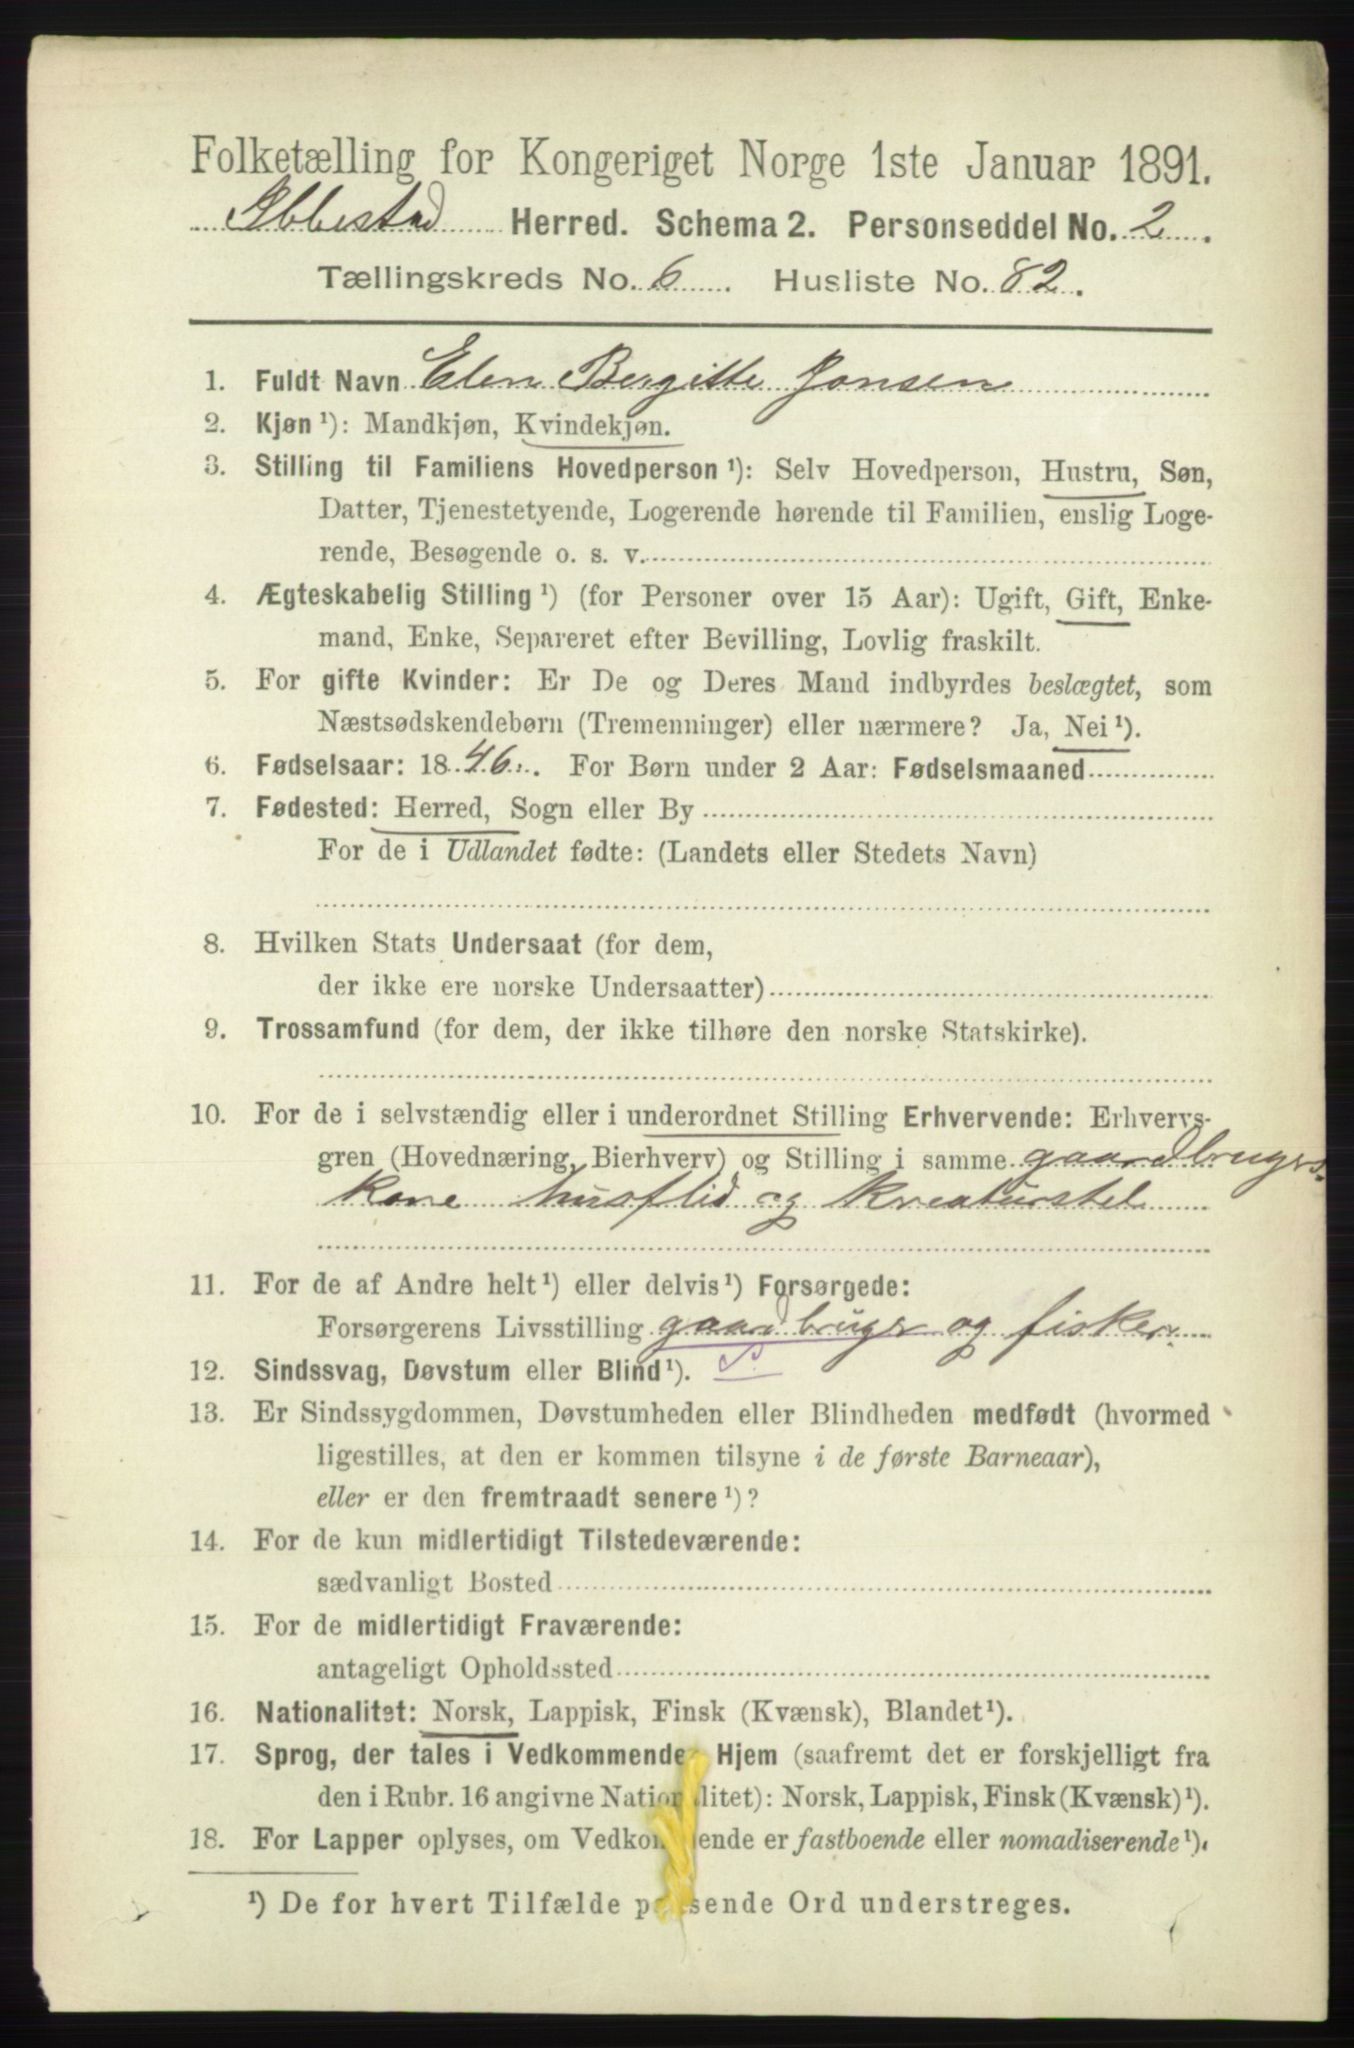 Folketælling for Kongeriget Norge 1ste Januar 1891.
Ibbestad Herred. Schema 2. Personseddel No. 2.
Tællingskreds No. 6. Husliste No. 82.
1. Fuldt Navn Elen Bergitte Jonsen
2. Kjøn ¹): Mandkjøn, Kvindekjøn.
3. Stilling til Familiens Hovedperson ¹): Selv Hovedperson, Hustru, Søn,
Datter, Tjenestetyende, Logerende hørende til Familien, enslig Loge-
rende, Besøgende o. s. v.
4. Ægteskabelig Stilling ¹) (for Personer over 15 Aar): Ugift, Gift, Enke-
mand, Enke, Separeret efter Bevilling, Lovlig fraskilt.
5. For gifte Kvinder: Er De og Deres Mand indbyrdes beslægtet, som
Næstsødskendebørn (Tremenninger) eller nærmere? Ja, Nei ¹).
6. Fødselsaar: 1846. For Børn under 2 Aar: Fødselsmaaned
7. Fødested: Herred, Sogn eller By
For de i Udlandet fødte: (Landets eller Stedets Navn)
8. Hvilken Stats Undersaat (for dem,
der ikke ere norske Undersaatter)
9. Trossamfund (for dem, der ikke tilhøre den norske Statskirke).
10. For de i selvstændig eller i underordnet Stilling Erhvervende: Erhvervs-
gren (Hovednæring, Bierhverv) og Stilling i samme gaardbrugers
kone husflid og kreaturstel
11. For de af Andre helt ¹) eller delvis ¹) Forsørgede:
Forsørgerens Livsstilling gaardbruger og fisker.
12. Sindssvag, Døvstum eller Blind ¹).
13. Er Sindssygdommen, Døvstumheden eller Blindheden medfødt (hvormed
ligestilles, at den er kommen tilsyne i de første Barneaar),
eller er den fremtraadt senere ¹)?
14. For de kun midlertidigt Tilstedeværende:
sædvanligt Bosted
15. For de midlertidigt Fraværende:
antageligt Opholdssted
16. Nationalitet: Norsk, Lappisk, Finsk (Kvænsk), Blandet ¹).
17. Sprog, der tales i Vedkommendes Hjem (saafremt det er forskjelligt fra
den i Rubr. 16 angivne Nationalitet): Norsk, Lappisk, Finsk (Kvænsk) ¹).
18. For Lapper oplyses, om Vedkommende er fastboende eller nomadiserende ¹).
¹) De for hvert Tilfælde passende Ord understreges.